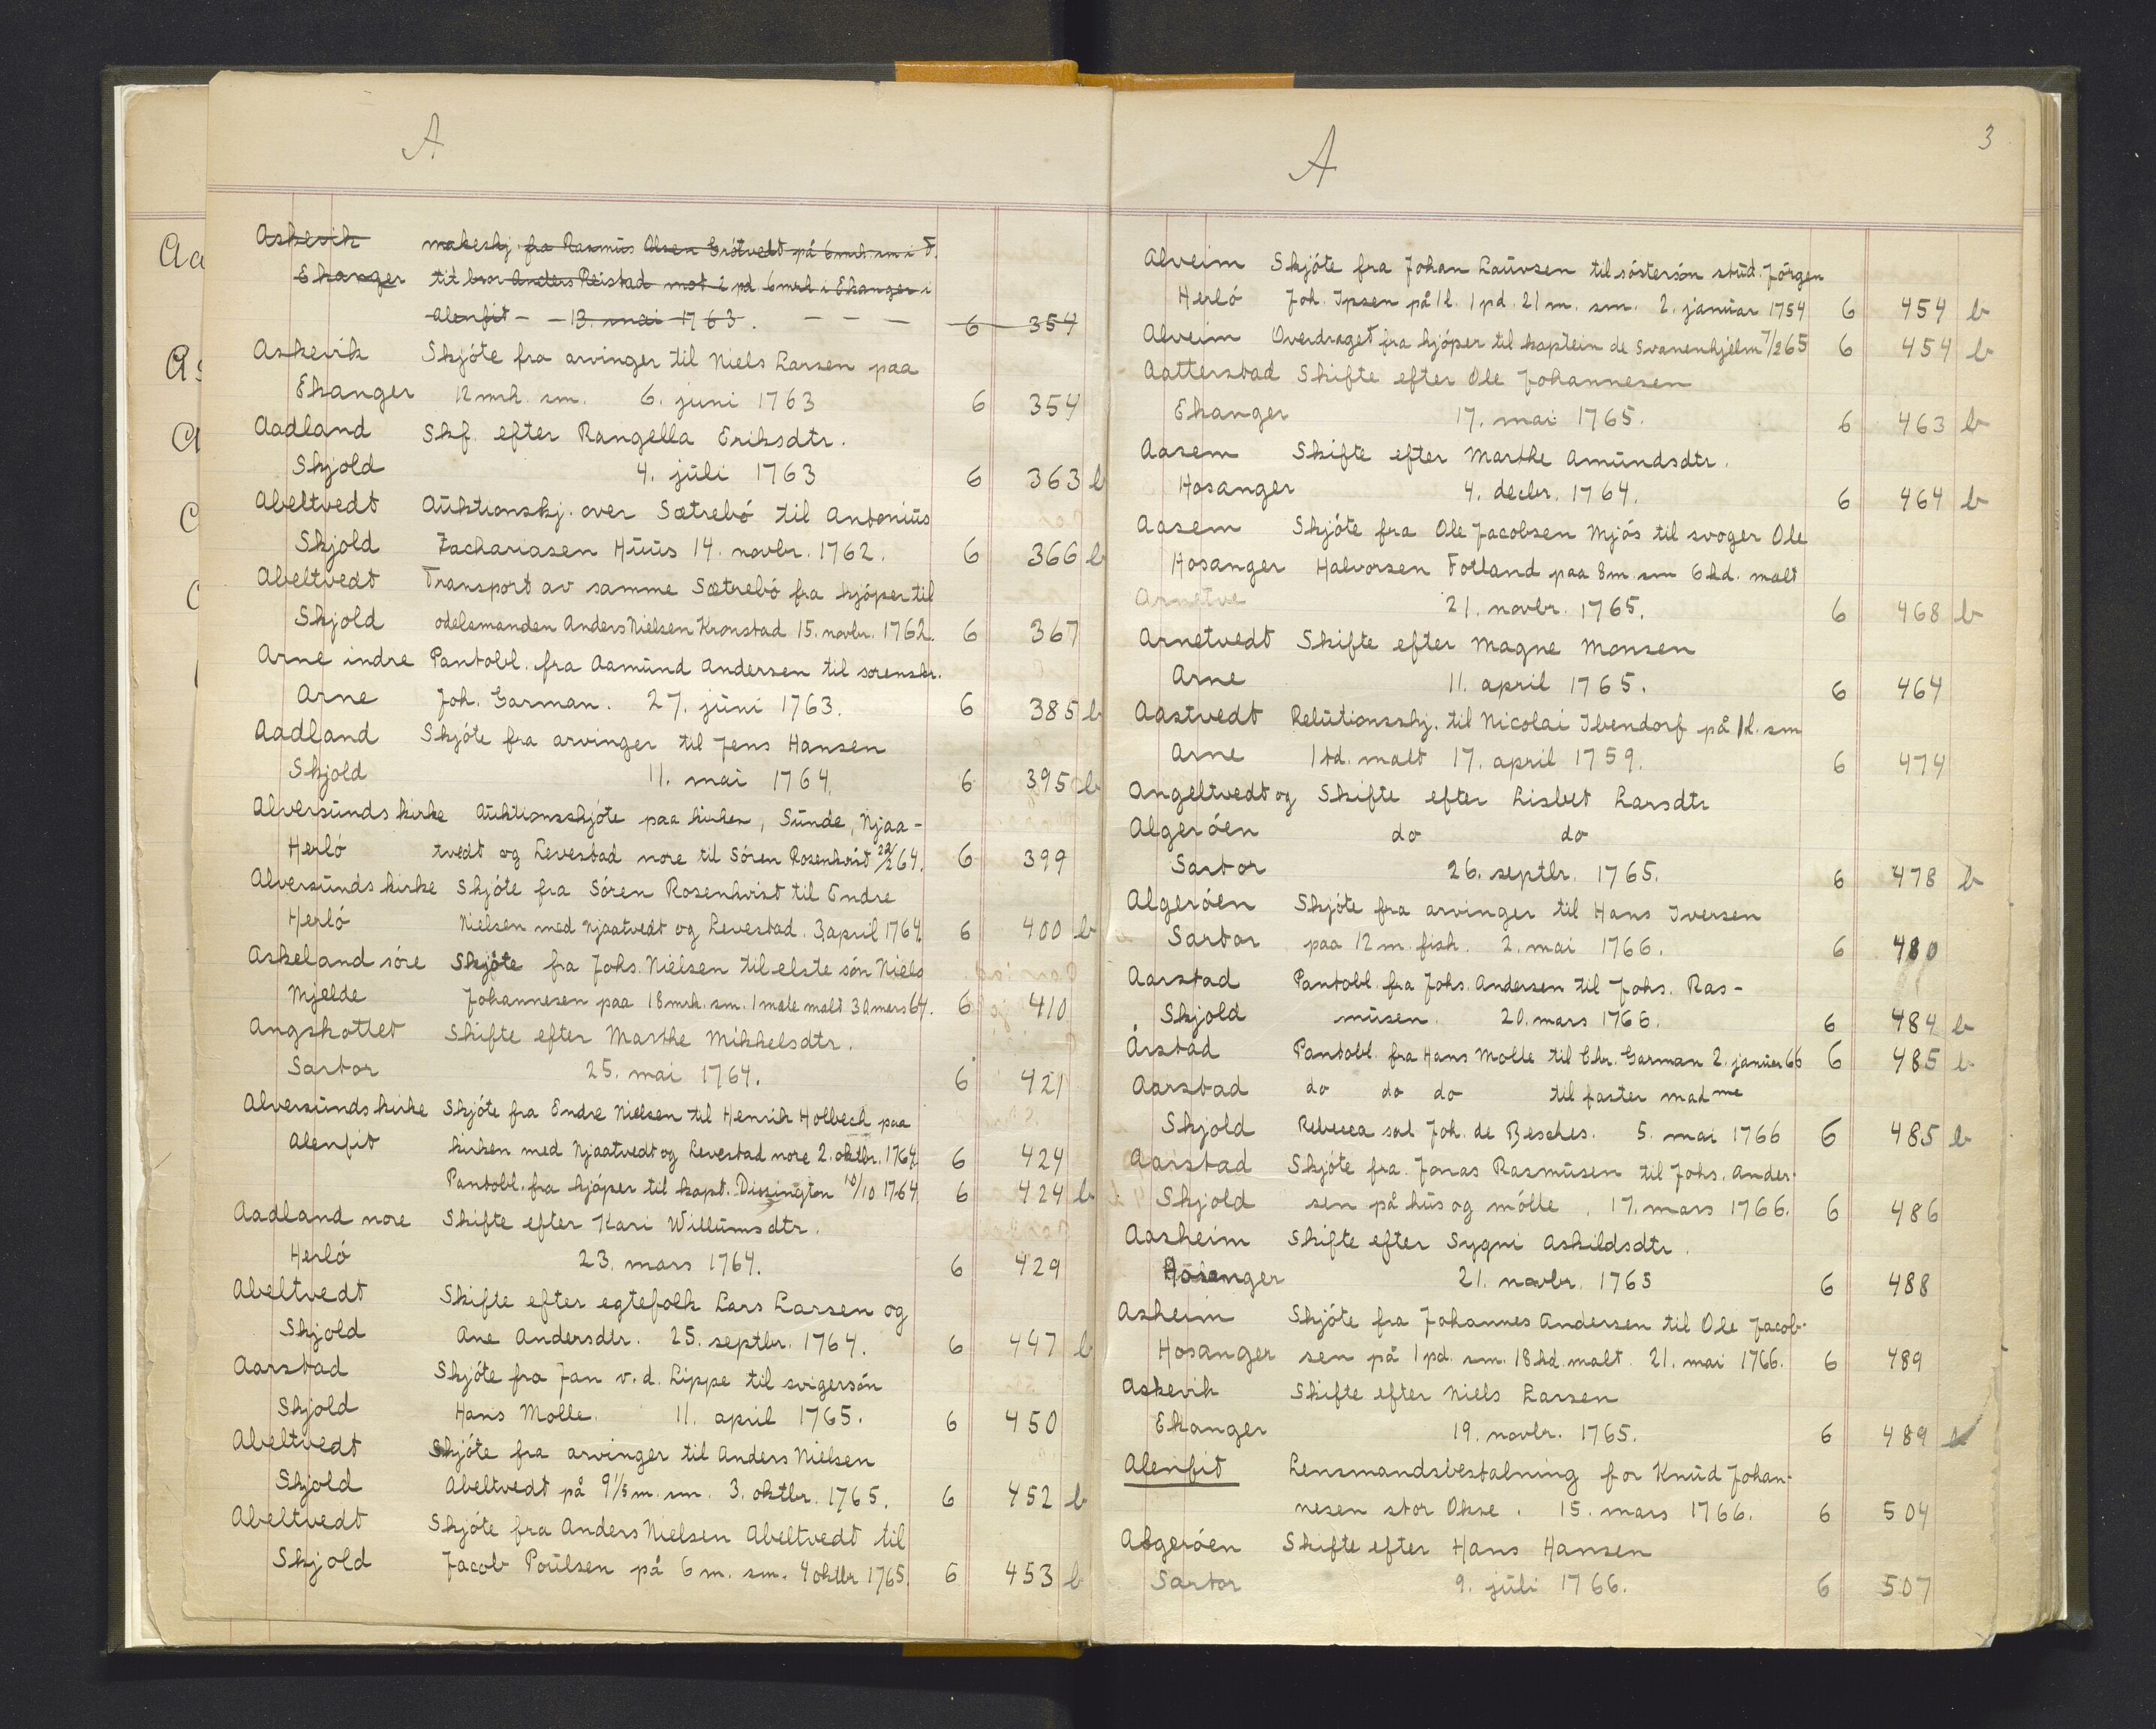 A
Askevik makeskj. fra Rasmus Olsen Grótvedt på 6 mrk. sm. i F.
Ekanger til bror Anders Reistad mot 2 pd. 6 mrk i Ekanger i
Alenfit - - 13. mai 1763. - - - 6 354
Askevik Skjóte fra arvinger til Niels Larsen paa
Ekanger 12 mrk. sm. 6. juni 1763 6 354
Aadland Skf. efter Rangella Eriksdtr.
Skjold 4. júli 1763 6 363 b
Abeltvedt Aúktionskj. over Sætrebó til Antoniús
Skjold Zachariasen Húús 14. novbr. 1762. 6 366 b
Abeltvedt Transport av samme Sætrebó fra kjóper til
Skjold odelsmanden Anders Nielsen Kronstad 15. novbr. 1762. 6 367
Arne indre Pantobl. fra Aamúnd Andersen til sorenskr.
Arne Joh. Garman. 27. júni 1763. 6 385 b
Aadland Skjóte fra arvinger til Jens Hansen
Skjold 11. mai 1764. 6 395 b
Alversúnds kirke Aúktionsskjóte paa kirken, Súnde, Njaa-
Herló tvedt og Levestad nore til Sóren Rosenkvist 22/2 64. 6 399
Alversúnds kirke Skjóte fra Sóren Rosenkvist til Endre
Herló Nielsen med Njaatvedt og Levestad. 3 april 1764 6 400 b
Askeland sóre Skjóte fra Johs. Nielsen til elste són Niels
Mjelde Johannesen paa 18 mrk. sm. 1 mæle malt 30 mars 64. 6 410
Angskottet Skifte efter Marthe Mikkelsdtr.
Sartor 25. mai 1764. 6 421
Alversúnds kirke Skjóte fra Endre Nielsen til Henrik Holbech paa
Alenfit kirken med Njaatvedt og Levestad nore 2. oktbr. 1764 6 424
Pantobl. fra kjóper til kapt. Dissington 10/10 1764 6 424 b
Aadland nore Skifte efter Kari Willúmsdtr.
Herló 23. mars 1764. 6 429
Abeltvedt Skifte efter egtefolk Lars Larsen og
Skjold Ane Andersdtr. 25. septbr. 1764. 6 447 b
Aarstad Skjóte fra Jan v. d. Lippe til svigersón
Skjold Hans Molle. 11. april 1765. 6 450
Abeltvedt Skjóte fra arvinger til Anders Nielsen
Skjold Abeltvedt på 9 1/5 m. sm. 3. oktbr. 1765. 6 452 b
Abeltvedt Skjóte fra Anders Nielsen Abeltvedt til
Skjold Jacob Poúlsen på 6 m. sm. 4 oktbr 1765. 6 453 b
3
A
Alveim Skjóte fra Johan Laúvsen til sóstersón stúd. Jórgen
Herló Joh. Ipsen på 1 l. 1 pd. 21 m. sm. 2. janúar 1754 6 454 b
Alveim Overdraget fra kjóper til kaptein de Svanenhjelm 7/2 65 6 454 b
Aatterstad Skifte efter Ole Johannesen
Ekanger 17. mai 1765. 6 463 b
Aasem Skifte efter Marthe Amúndsdtr.
Hosanger 4. decbr. 1764. 6 464 b
Aasem Skjóte fra Ole Jacobsen Mjós til svoger Ole
Hosanger Halvorsen Fotland paa 8 m. sm 6 kd. malt
Arnetve 21. novbr. 1765. 6 468 b
Arnetvedt Skifte efter Magne Monsen
Arne 11. april 1765. 6 464
Aastvedt Relútionsskj. til Nicolai Ibendorf på 1 l. sm
Arne 1 td. malt 17. april 1759. 6 474
Angeltvedt og Skifte efter Lisbet Larsdtr
Algeróen do do
Sartor 26. septbr. 1765. 6 478 b
Algeróen Skjóte fra arvinger til Hans Iversen
Sartor paa 12 m. fisk. 2. mai 1766. 6 480
Aarstad Pantobl. fra Johs. Andersen til Johs. Ras-
Skjold músen. 20. mars 1766. 6 484 b
Årstad Pantobl. fra Hans Molle til Chr. Garman 2. janúar 66 6 485 b
Aarstad do do do til faster madme
Skjold Rebecca sal Joh. de Besches. 5. mai 1766 6 485 b
Aarstad Skjóte fra Jonas Rasmúsen til Johs. Ander-
Skjold sen på hús og mólle. 17. mars 1766. 6 486
Aasheim Skifte efter Sygni Askildsdtr.
Hosanger 21. novbr. 1765 6 488
Asheim Skjóte fra Johannes Andersen til Ole Jacob-
Hosanger sen på 1 pd. sm. 18 kd. malt. 21. mai 1766. 6 489
Askevik Skifte efter Niels Larsen
Ekanger 19. novbr. 1765. 6 489
Alenfit Lensmandsbestalning for Knúd Johan-
nesen stor Okse. 15. mars 1766. 6 504
Algeróen Skifte efter Hans Hansen
Sartor 9. júli 1766. 6 507